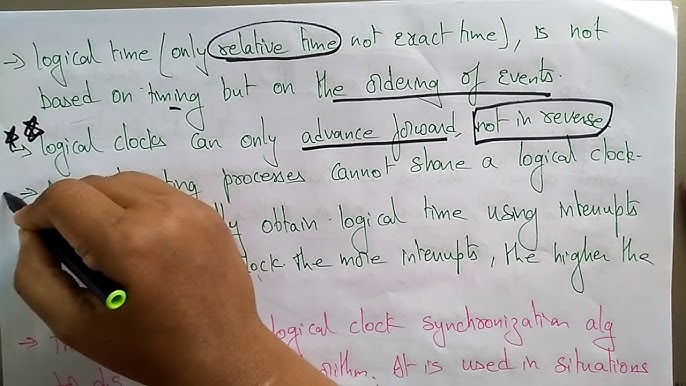 → logical time (only relative time not exact time), is not
based on timing but on the ordering of events.
→ logical clocks can only advance forward, not in reverse
→ processes cannot share a logical clock.
obtain logical time using interrupts
the more interrupts, the higher the
→ logical clock synchronization alg
It is used in situations